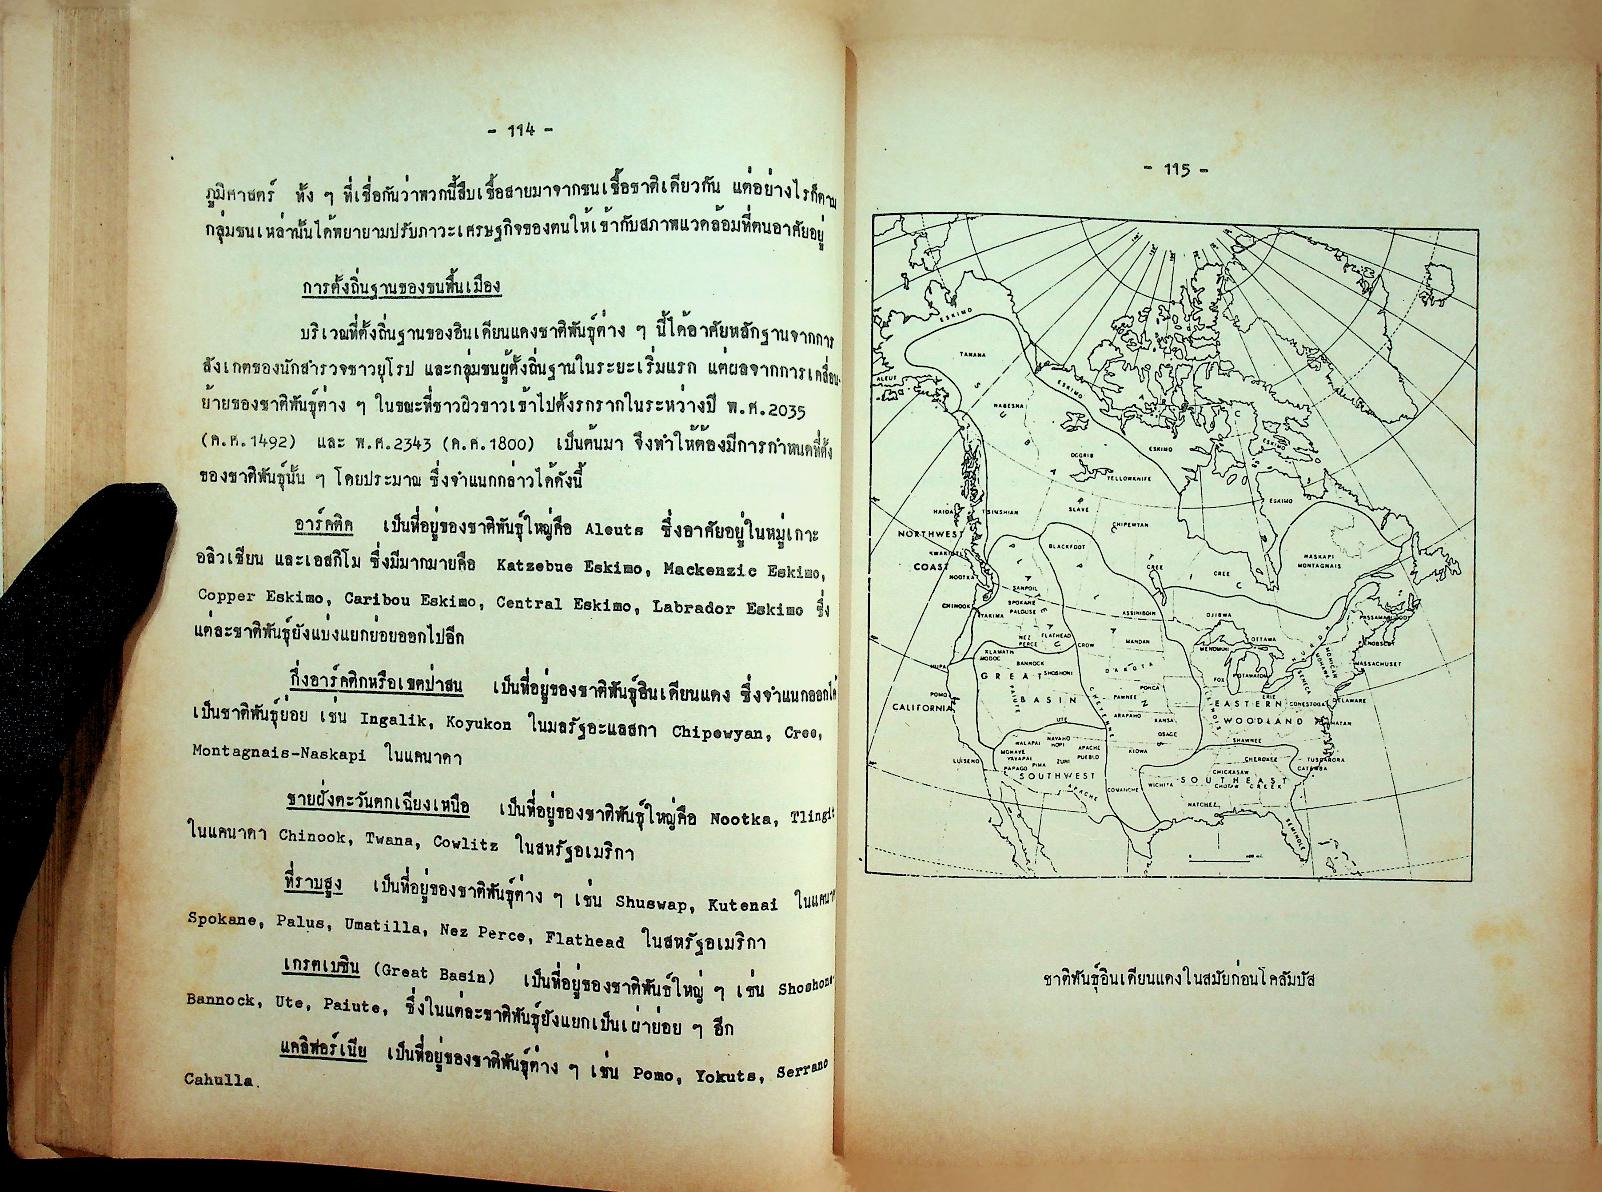 - 114 -
ภูมิศาสตร์ ทั้ง ๆ ที่เชื่อกันว่าพวกนี้สืบเชื้อสายมาจากชนเชื้อชาติเดียวกัน แต่อย่างไรก็ตาม
กลุ่มชนเหล่านั้นได้พยายามปรับภาวะเศรษฐกิจของตนให้เข้ากับสภาพแวดล้อมที่ตนอาศัยอยู่
การตั้งถิ่นฐานของชนพื้นเมือง
บริเวณที่ตั้งถิ่นฐานของอินเดียนแดงชาติพันธุ์ต่าง ๆ นี้ได้อาศัยหลักฐานจากการ
สังเกตของนักสำรวจชาวยุโรป และกลุ่มชนผู้ตั้งถิ่นฐานในระยะเริ่มแรก แต่ผลจากการเคลื่อน
ย้ายของชาติพันธุ์ต่าง ๆ ในขณะที่ชาวผิวขาวเข้าไปตั้งรกรากในระหว่างปี พ.ศ.2035
(ค.ศ.1492) และ พ.ศ.2343 (ค.ศ.1800) เป็นต้นมา จึงทำให้ต้องมีการกำหนดที่ตั้ง
ของชาติพันธุ์นั้น ๆ โดยประมาณ ซึ่งจำแนกกล่าวได้ดังนี้
อาร์คติค เป็นที่อยู่ของชาติพันธุ์ใหญ่คือ Aleuts ซึ่งอาศัยอยู่ในหมู่เกาะ
อลิวเชียน และเอสกิโม ซึ่งมีมากมายคือ Katzebue Eskimo, Mackenzic Eskimo,
Copper Eskimo, Caribou Eskimo, Central Eskimo, Labrador Eskimo ซึ่ง
แต่ละชาติพันธุ์ยังแบ่งแยกย่อยออกไปอีก
กึ่งอาร์คติกหรือเขตป่าสน เป็นที่อยู่ของชาติพันธุ์อินเดียนแดง ซึ่งจำแนกออกได้
เป็นชาติพันธุ์ย่อย เช่น Ingalik, Koyukon ในมลรัฐอะแลสกา Chipewyan, Cree,
Montagnais-Naskapi ในแคนาดา
ชายฝั่งตะวันตกเฉียงเหนือ เป็นที่อยู่ของชาติพันธุ์ใหญ่คือ Nootka, Tlingit
ในแคนาดา Chinook, Twana, Cowlitz ในสหรัฐอเมริกา
ที่ราบสูง เป็นที่อยู่ของชาติพันธุ์ต่าง ๆ เช่น Shuswap, Kutenai ในแคนาดา
Spokane, Palus, Umatilla, Nez Perce, Flathead ในสหรัฐอเมริกา
เกรตเบซิน (Great Basin) เป็นที่อยู่ของชาติพันธ์ใหญ่ ๆ เช่น Shoshone
Bannock, Ute, Paiute, ซึ่งในแต่ละชาติพันธุ์ยังแยกเป็นเผ่าย่อย ๆ อีก
แคลิฟอร์เนีย เป็นที่อยู่ของชาติพันธุ์ต่าง ๆ เช่น Pomo, Yokuts, Serrano
Cahulla.
- 115 -
ESKIMO
TANANA
ALEUT
NABESNA
ESKIMO
ESKIMO
ESKIMO
DOGRIB
YELLOWKNIFE
ESKIMO
SLAVE
HAIDA
TSINSHIAN
CHIPEWYAN
NORTHWEST
COAST
KWAKIUTL
BLACKFOOT
NASKAPI
MONTAGNAIS
NOOTKA
CREE
CREE
SANPOIL
SPOKANE
PALOUSE
CHINOOK
YAKIMA
ASSINIBOIN
OJIBWA
PASSAMAQUODDY
NEZ
PERCE
FLATHEAD
CROW
MANDAN
OTTAWA
MENOMINI
PENOBSCOT
MOHICAN
MOHAWK
KLAMATH
MODOC
BANNOCK
SHOSHONI
DAKOTA
MASSACHUSET
HUPA
GREAT
BASIN
PAIUTE
CHEYENNE
PONCA
PAWNEE
FOX
POTAWATOMI
SENECA
ERIE
CONESTOGA
DELAWARE
POMO
CALIFORNIA
EASTERN
WOODLAND
ILLINOIS
POWHATAN
UTE
ARAPAHO
KANSA
OSAGE
SHAWNEE
LUISENO
WALAPAI
NAVAHO
HOPI
MOHAVE
YAVAPAI
PAPAGO
PIMA
ZUNI
APACHE
PUEBLO
KIOWA
CHEROKEE
TUSCARORA
CATAWBA
SOUTHWEST
APACHE
COMANCHE
WICHITA
CHICKASAW
SOUTHEAST
CHOTAW
CREEK
NATCHEZ
SEMINOLE
ชาติพันธุ์อินเดียนแดงในสมัยก่อนโคลัมบัส